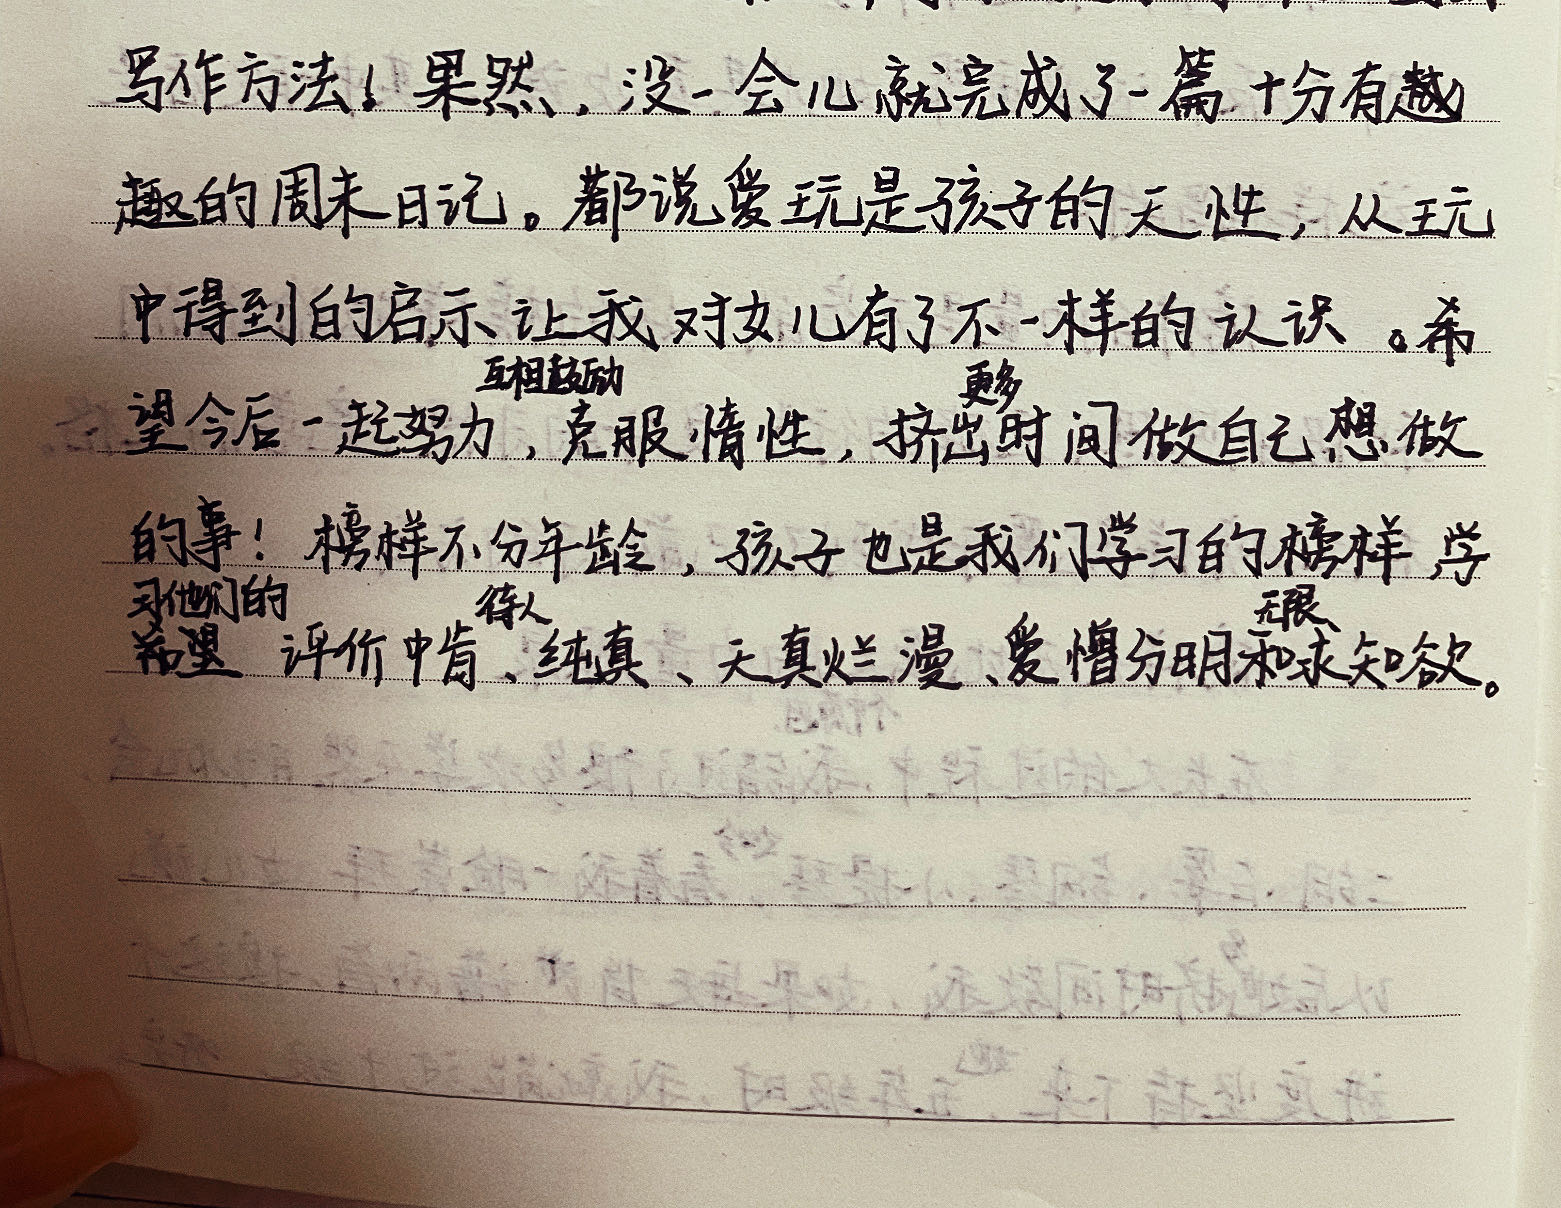 写作方法！果然，没一会儿就完成了一篇十分有趣
趣的周末日记。都说爱玩是孩子的天性，从玩
中得到的启示让我对女儿有了不一样的认识。希
互相鼓励 更多
望今后一起努力，克服惰性，挤出时间做自己想做
的事！榜样不分年龄，孩子也是我们学习的榜样，学
习他们的 待人 无限
希望 评价中肯、纯真、天真烂漫、爱憎分明和求知欲。